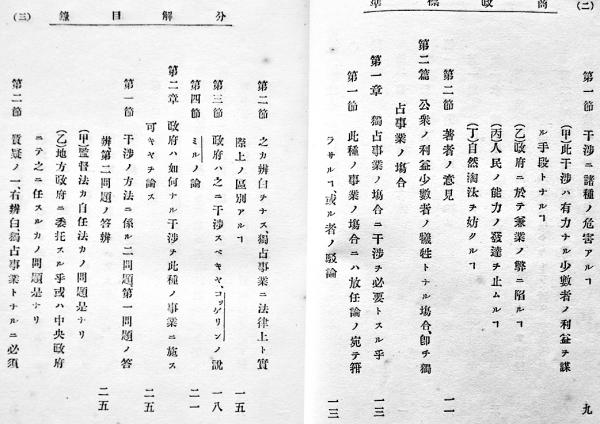 商政標準
(二)
第一節 干渉ニ諸種ノ危害アルヿ 九
(甲)此干渉ハ有力ナル少數者ノ利益ヲ謀
ル手段トナルヿ
(乙)政府ニ於テ兼業ノ弊ニ陥ルヿ
(丙)人民ノ能力ノ發達ヲ止ムルヿ
(丁)自然淘汰ヲ妨クルヿ
第二節 著者ノ意見 一一
第二篇 公衆ノ利益少數者ノ犠牲トナル塲合、卽チ獨
占事業ノ塲合
第一章 獨占事業ノ塲合ニ干渉ヲ必要トスル乎 一三
第一節 此種ノ事業ノ塲合ニハ放任論ノ宛テ箝
ラサルヿ、或ル者ノ駁論 一三
分解目錄
(三)
第二節 之カ辨白ヲナス、獨占事業ニ法律上ト實
際上ノ區別アルヿ 一五
第三節 政府ハ之ニ干渉スベキヤ、コッゲリンノ說 一八
第四節 ミルノ論 二一
第二章 政府ハ如何ナル干渉ヲ此種ノ事業ニ施ス
可キヤヲ論ス 二五
第一節 干渉ノ方法ニ係ル二問題第一問題ノ答
辨、第二問題ノ答辨 二五
(甲)監督法カ自任法カノ問題是ナリ
(乙)地方政府ニ委托スル乎或ハ中央政府
ニテ之ニ任スルカノ問題是ナリ
第二節 質疑ノ一、右辨白獨占事業トナルニ必須